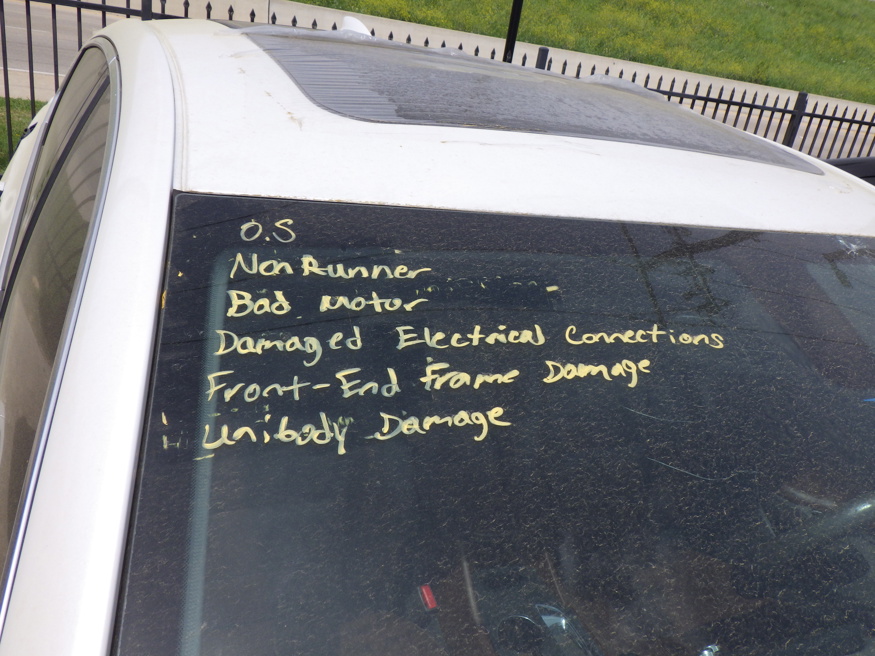 O.S
Non Runner
Bad Motor
Damaged Electrical Connections
Front-End Frame Damage
Unibody Damage